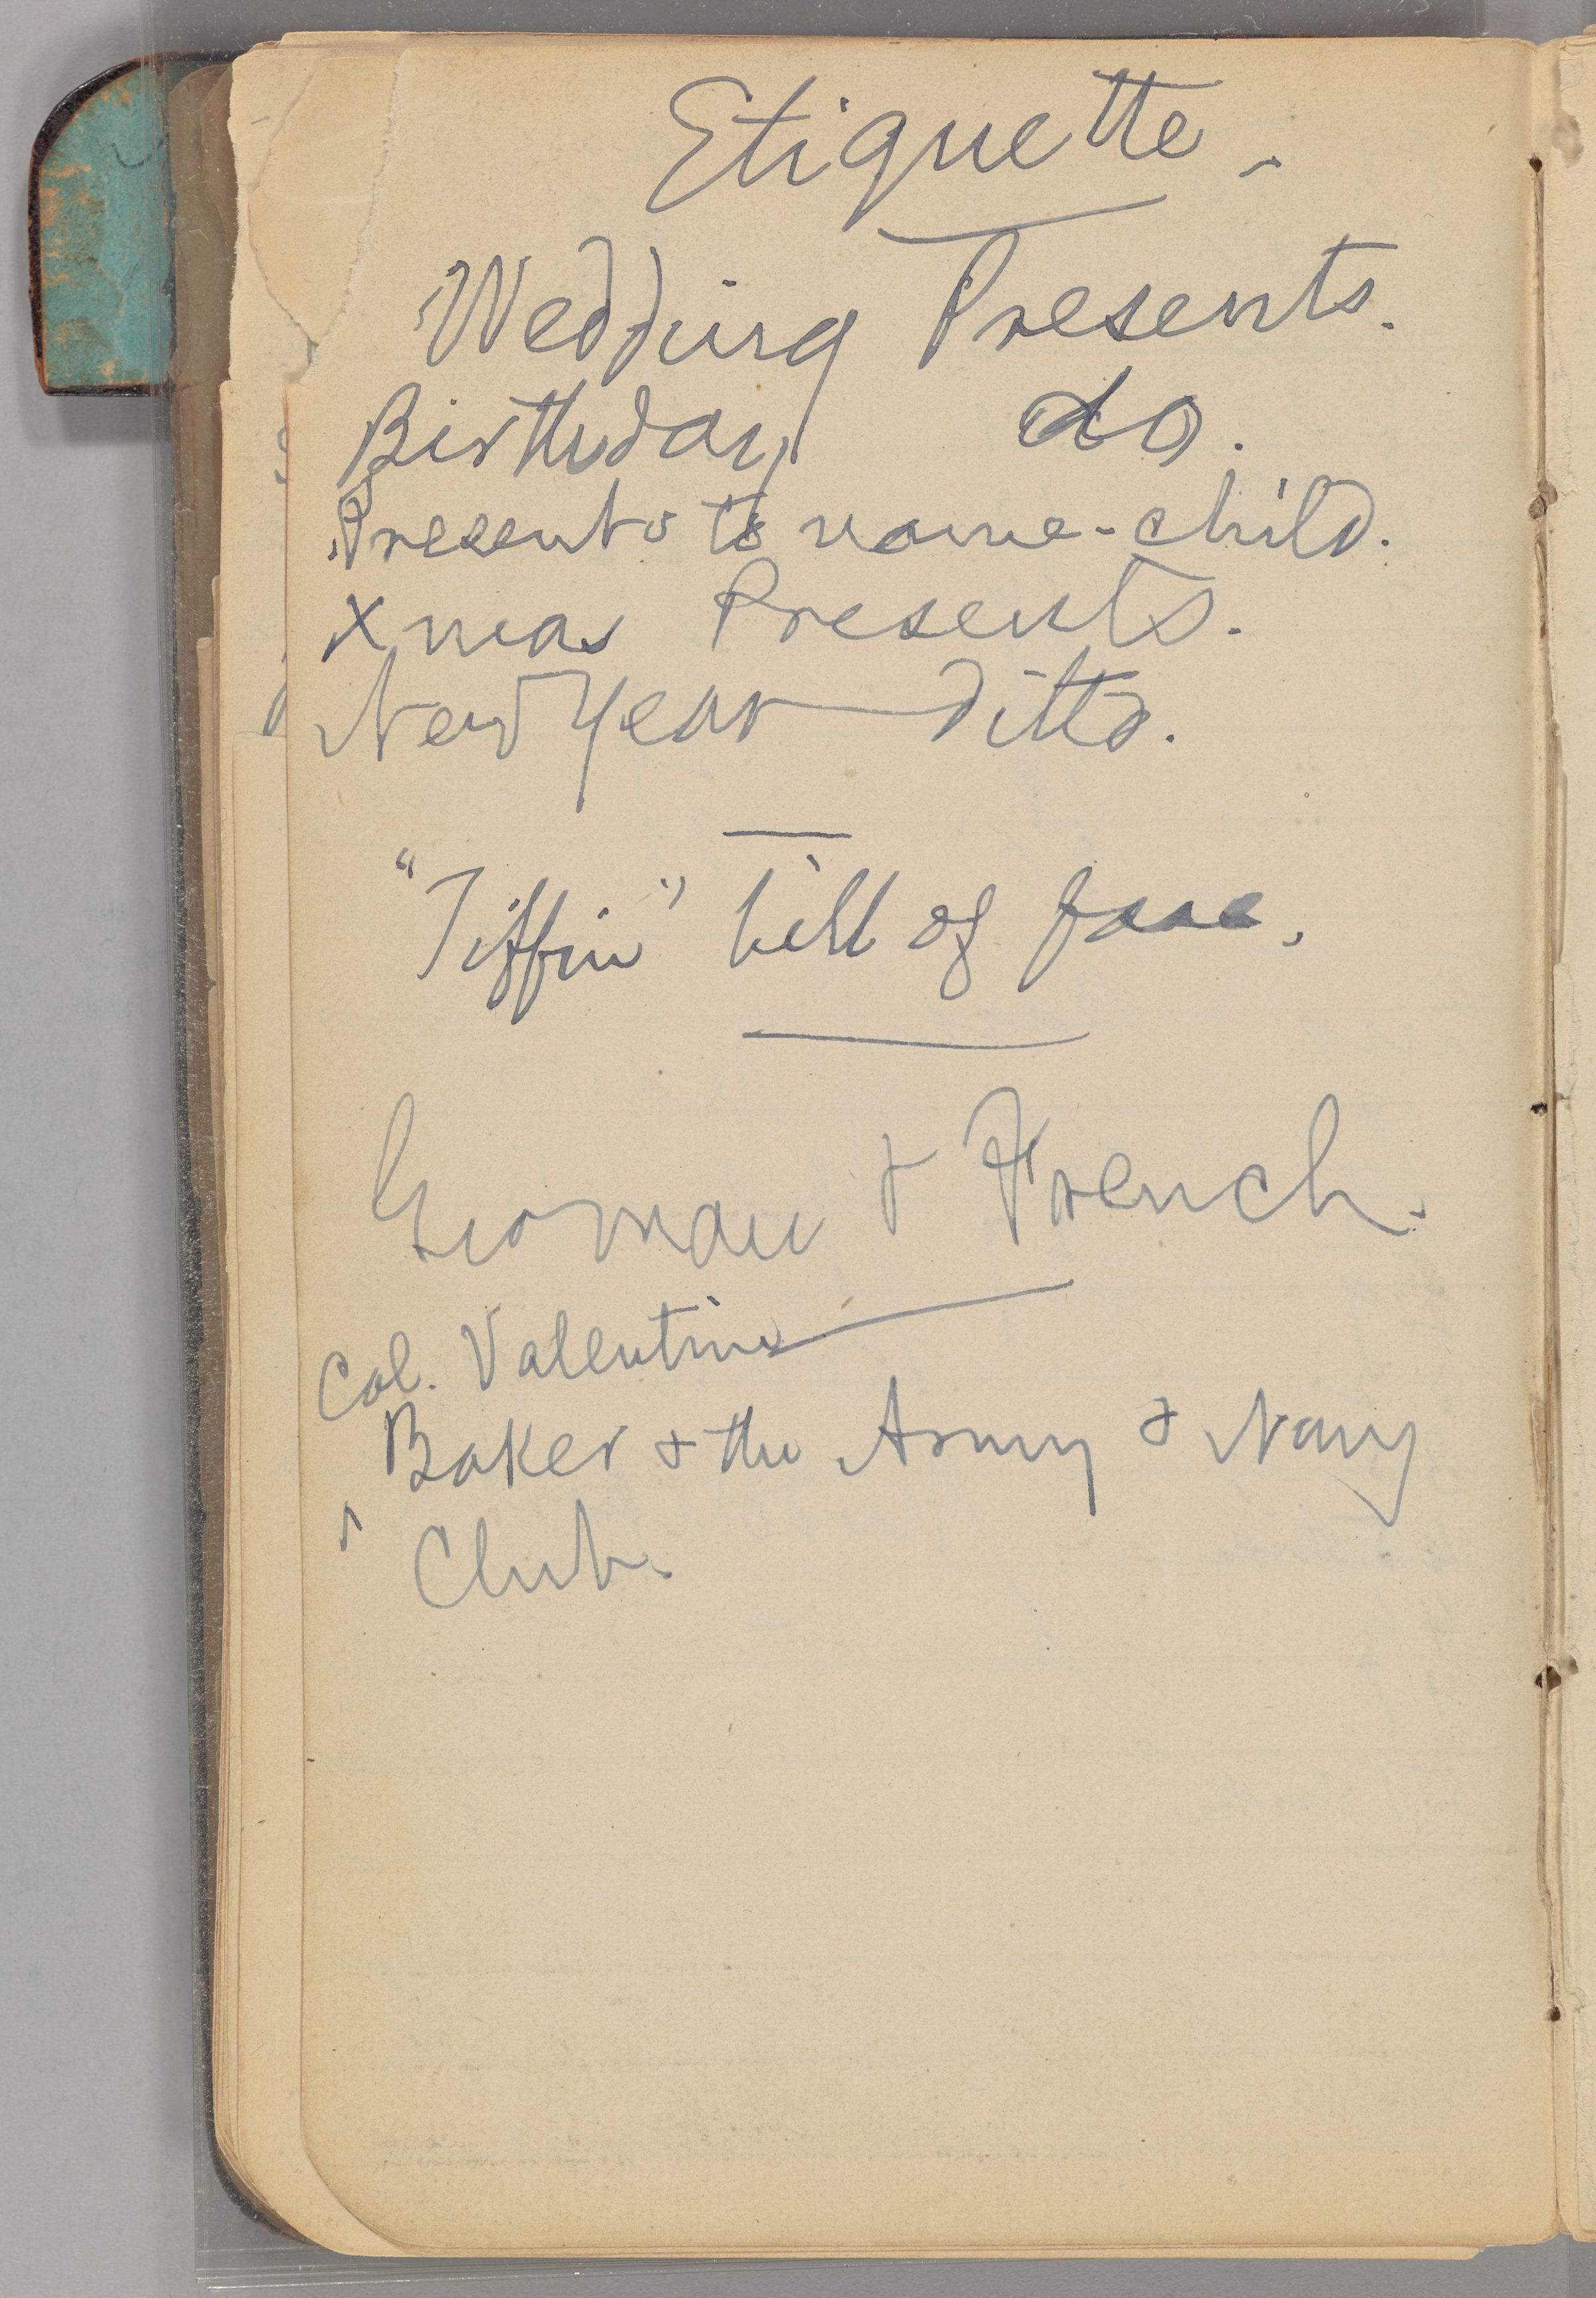 Etiquette.
Wedding Presents.
Birthday do.
Presents to name-child.
Xmas Presents.
New Year ditto.
"Tiffin" bill of fare.
German & French.
Col. Valentine
Baker & the Army & Navy
Club.